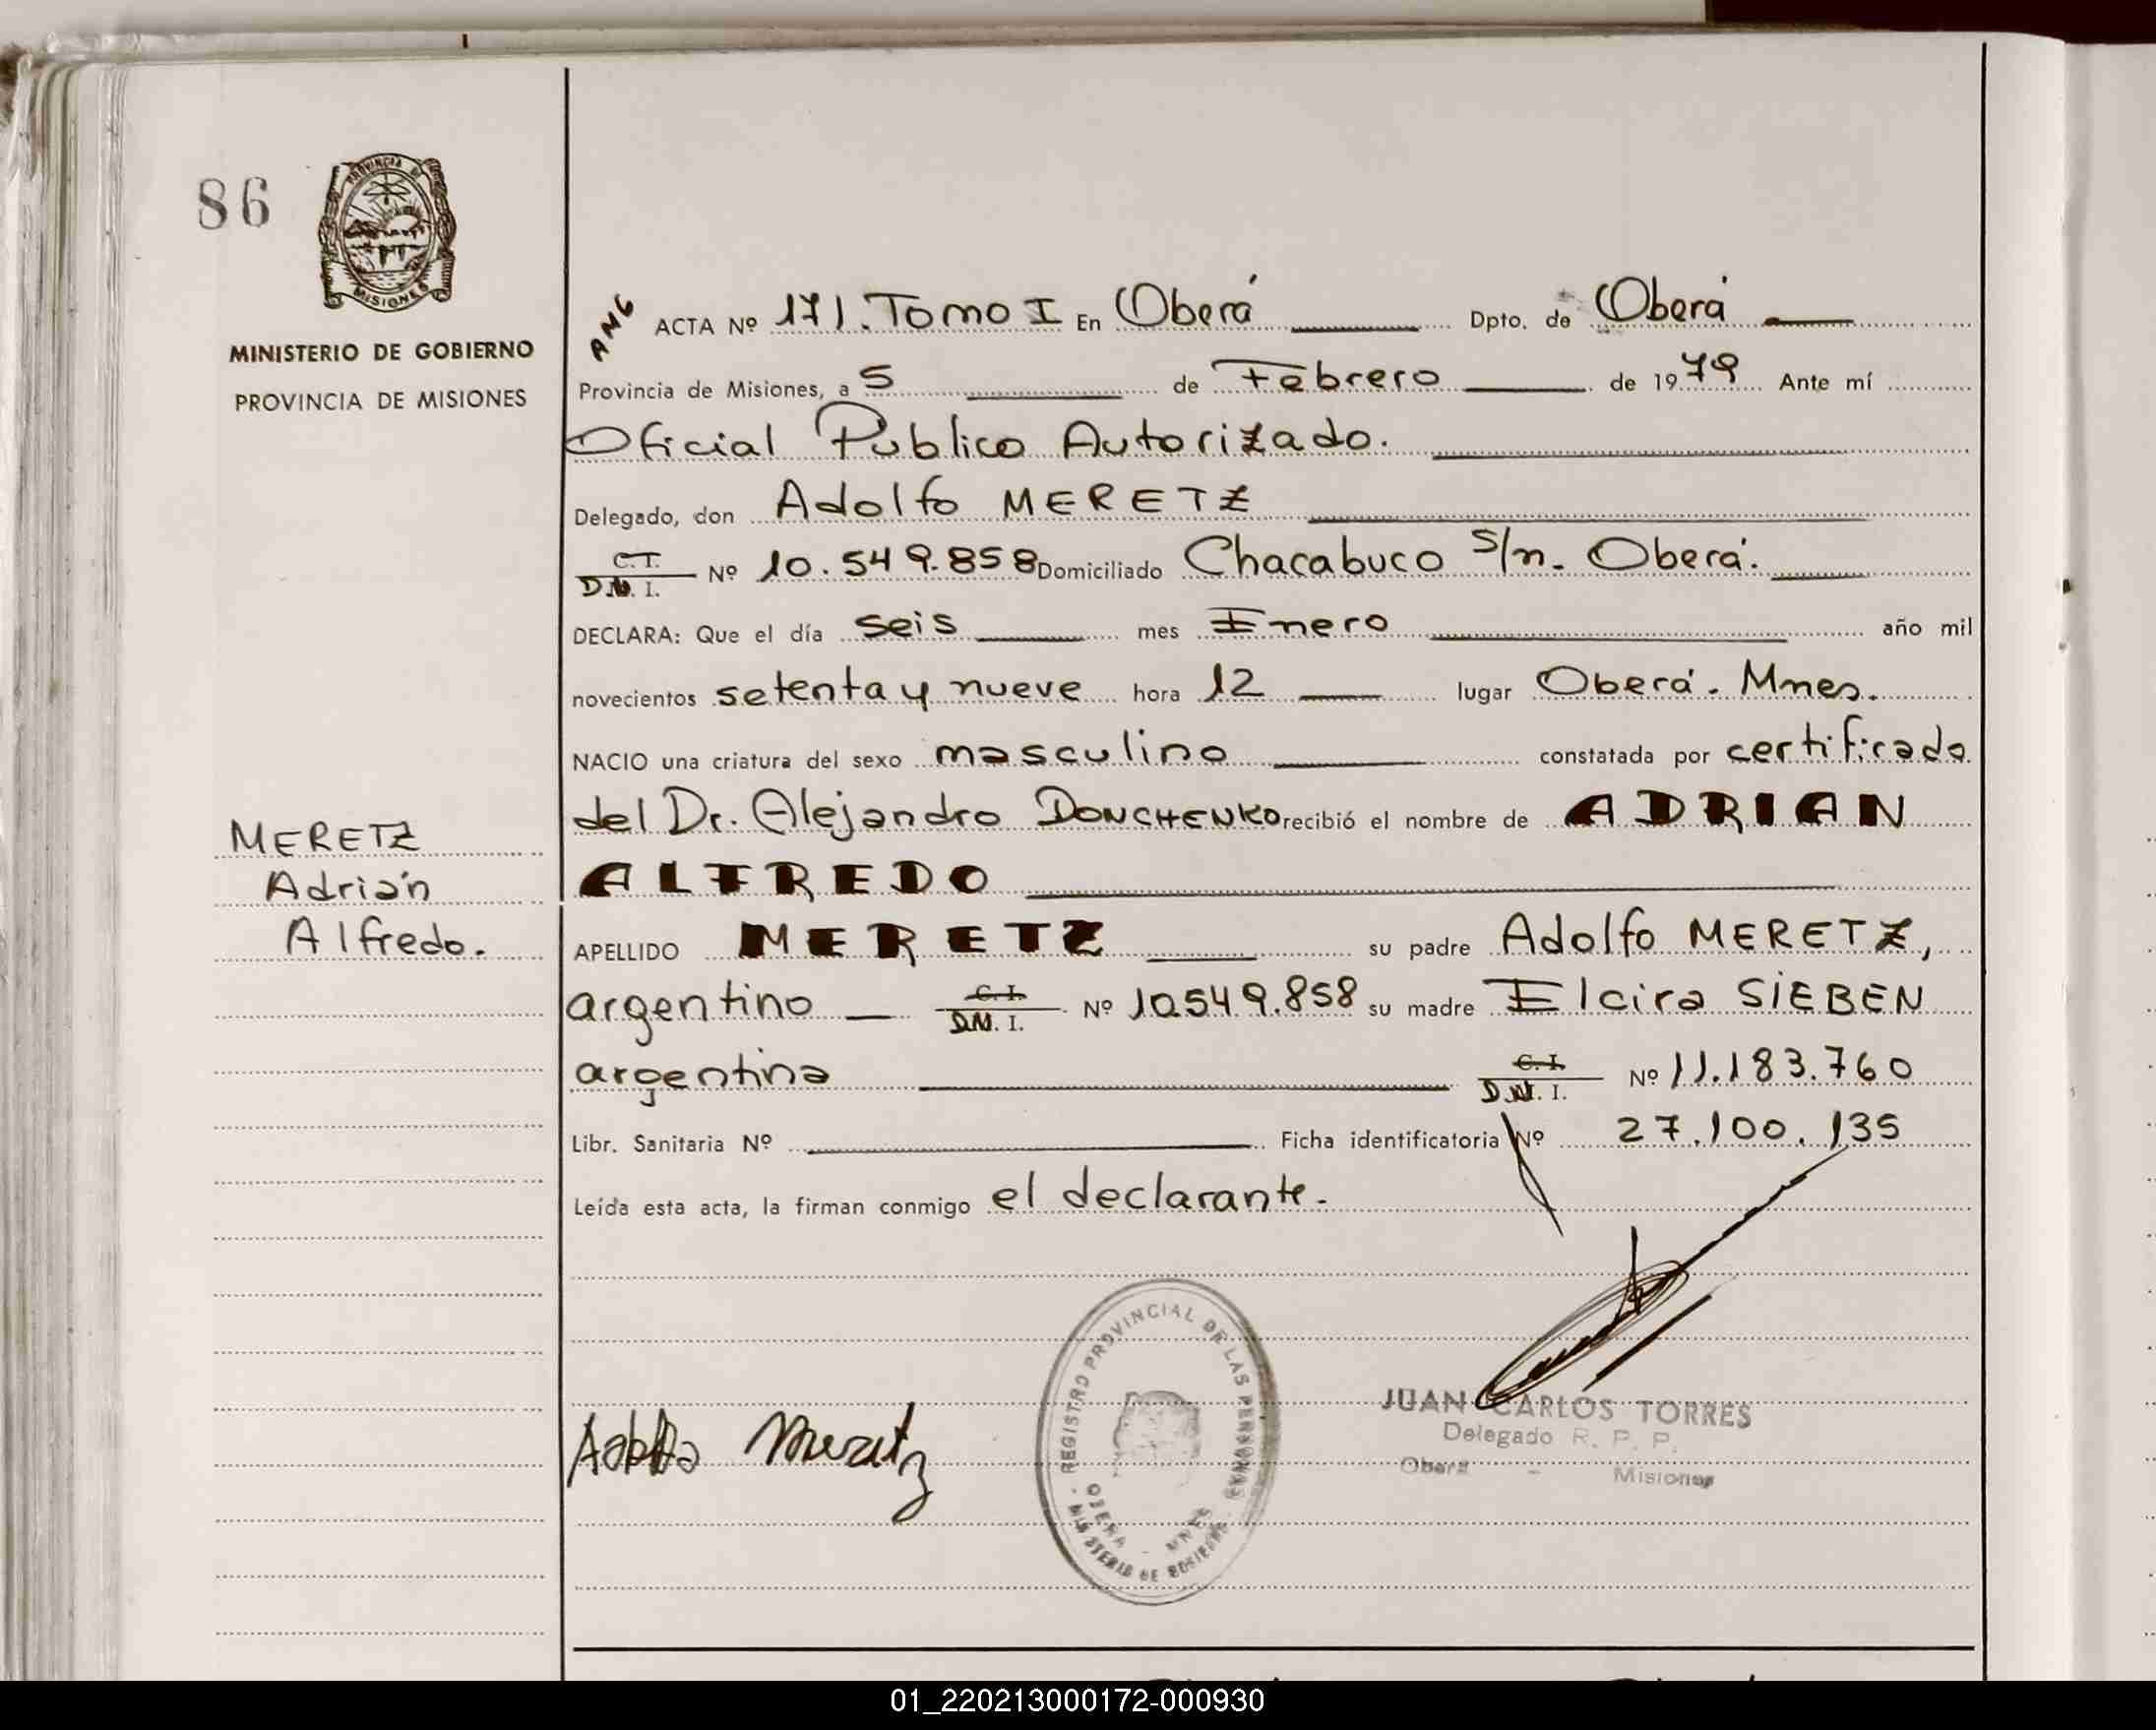 86
PROVINCIA DE
MISIONES
MINISTERIO DE GOBIERNO
PROVINCIA DE MISIONES
MERETZ
Adrián
Alfredo.
ANG
ACTA Nº 171. Tomo I En Oberá Dpto. de Oberá
Provincia de Misiones, a 5 de Febrero de 1979 Ante mí
Oficial Publico Autorizado.
Delegado, don Adolfo MERETZ
C. I.
D.N. I. Nº 10.549.858 Domiciliado Chacabuco s/n. Oberá.
DECLARA: Que el día seis mes Enero año mil
novecientos setenta y nueve hora 12 lugar Oberá. Mnes.
NACIO una criatura del sexo masculino constatada por certificado
del Dr. Alejandro DONCHENKO recibió el nombre de ADRIAN
ALFREDO
APELLIDO MERETZ su padre Adolfo MERETZ,
argentino C. I. D.N. I. Nº 10.549.858 su madre Elcira SIEBEN
argentina C. I. D.N. I. Nº 11.183.760
Libr. Sanitaria Nº Ficha identificatoria Nº 27.100.135
Leída esta acta, la firman conmigo el declarante.
Adolfo Meretz
REGISTRO PROVINCIAL DE LAS PERSONAS
MINISTERIO DE GOBIERNO
OBERA - MNES
JUAN CARLOS TORRES
Delegado R. P. P.
Oberá - Misiones
01_220213000172-000930